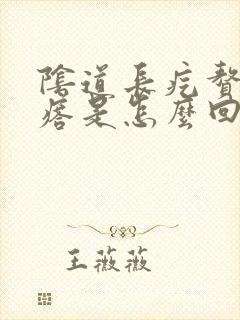 陰道長疙贅
瘩是怎麼回
王薇薇